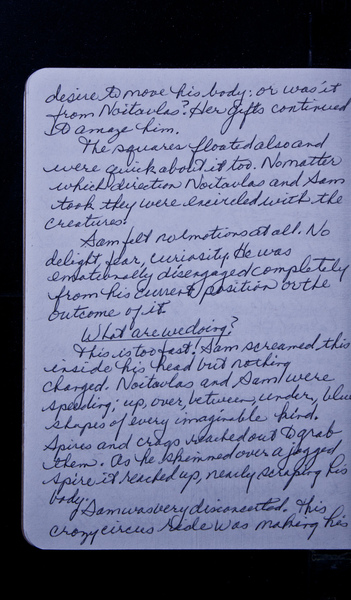 desire to move his body: or was it
from Noitavlas? Her gifts continued
to amaze him.
The squares floated also and
were quick about it too. No matter
which direction Noitavlas and Sam
took they were encircled with the
creatures.
Sam felt no emotions at all. No
delight, fear, curiosity. He was
emotionally disengaged completely
from his current position or the
outcome of it.
What are we doing?
This is too fast! Sam screamed this
inside his head but nothing
changed. Noitavlas and Sam were
speeding; up, over, between, under, blue
shapes of every imaginable kind.
Spires and crags reached out to grab
them. As he skimmed over a jagged
spire it reached up, nearly scraping his
body.
Sam was very disconcerted. This
crazy circus ride was making his